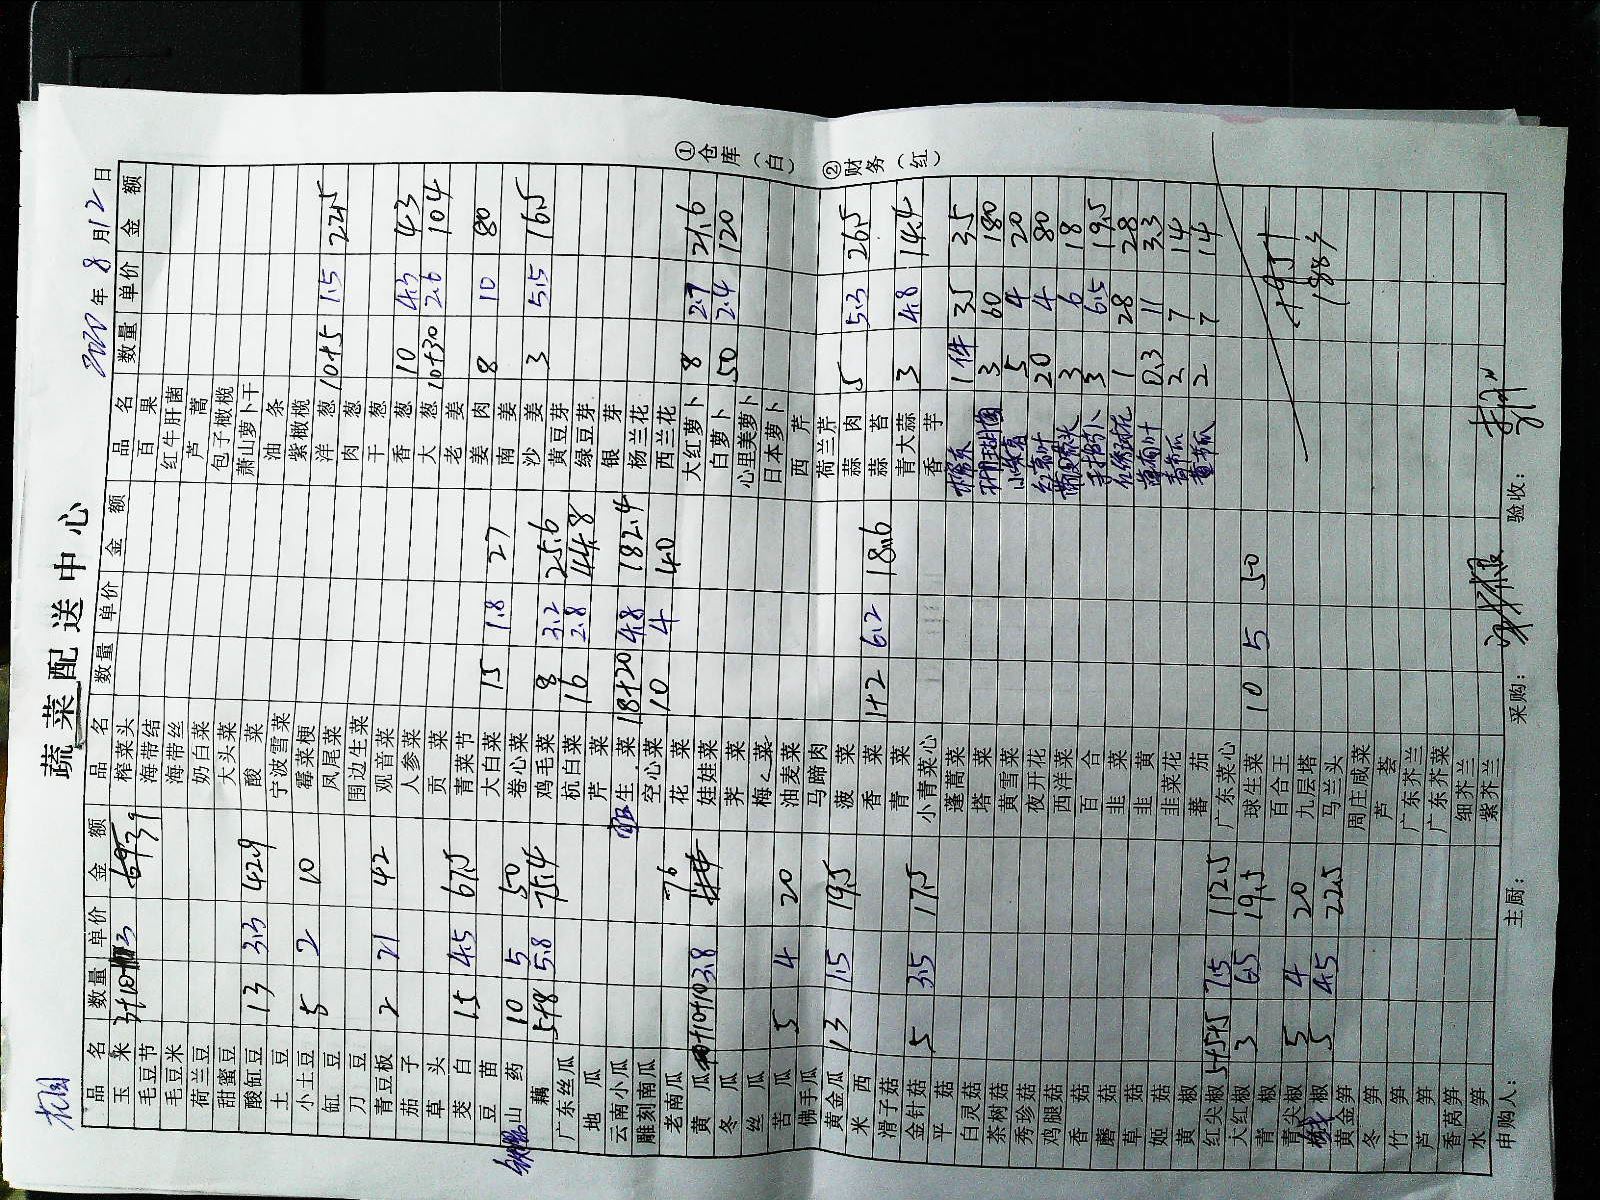 蔬菜配送中心
2020年8月12日
品名 数量 单价 金额 品名 数量 单价 金额 品名 数量 单价 金额
玉米 3+10 3 39 榨菜头 百果
毛豆节 海带结 红牛肝菌
毛豆米 海带丝 芦蒿
荷兰豆 奶白菜 包子橄榄
甜蜜豆 大头菜 萧山萝卜干
酸缸豆 13 3.3 42.9 酸菜 油条
土豆 宁波雪菜 紫橄榄
小土豆 5 2 10 霉菜梗 洋葱 10+5 1.5 22.5
缸豆 凤尾菜 肉葱
刀豆 围边生菜 干葱
青豆板 2 21 42 观音菜 香葱 10 4.3 43
茄子 人参菜 大葱 10+30 2.6 104
草头 贡菜 老姜
茭白 15 4.5 67.5 青菜节 姜肉 8 10 80
豆苗 大白菜 15 1.8 27 南姜
山药 10 5 50 卷心菜 沙姜 3 5.5 16.5
藕 5+8 5.8 75.4 鸡毛菜 8 3.2 25.6 黄豆芽
广东丝瓜 杭白菜 16 2.8 44.8 绿豆芽
地瓜 芹菜 银芽
云南小瓜 生菜 18+20 4.8 182.4 杨兰花
雕刻南瓜 空心菜 10 4 40 西兰花
老南瓜 花菜 大红萝卜 8 2.7 21.6
黄瓜 10+10 3.8 76 娃娃菜 白萝卜 50 2.4 120
冬瓜 荠菜 心里美萝卜
丝瓜 梅菜 日本萝卜
苦瓜 5 4 20 油麦菜 西芹
佛手瓜 马蹄肉 荷兰芹
黄金瓜 13 1.5 19.5 菠菜 蒜肉 5 5.3 26.5
米西 香菜 1+2 6.2 18.6 蒜苔
滑子菇 青菜 青大蒜 3 4.8 14.4
金针菇 5 3.5 17.5 小青菜心 香芋
平菇 蓬蒿菜 1件 35 35
白灵菇 塔菜 3 60 180
茶树菇 黄雪菜 5 4 20
秀珍菇 夜开花 20 4 80
鸡腿菇 西洋菜 3 6 18
香菇 百合 3 6.5 19.5
蘑菇 韭菜 1 28 28
草菇 韭黄 0.3 11 3.3
姬菇 韭菜花 2 7 14
黄椒 蕃茄 2 7 14
红尖椒 5+5+5 7.5 112.5 广东菜心
大红椒 3 6.5 19.5 球生菜 10 5 50
青椒 百合王
青尖椒 5 4 20 九层塔
椒 5 4.5 22.5 马兰头
黄金笋 周庄咸菜
冬笋 芦荟
竹笋 广东芥兰
芦笋 广东芥菜
香莴笋 细芥兰
水笋 紫芥兰
申购人： 主厨： 采购： 验收：
①仓库（白） ②财务（红）